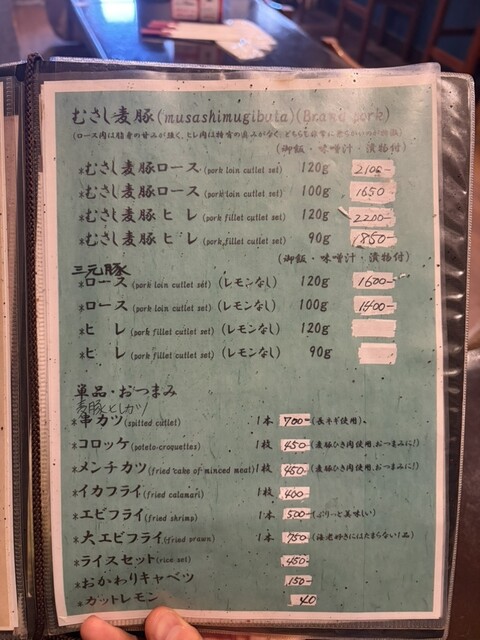 むさし麦豚(musashimugibuta)(Brand pork)
(ロース肉は脂身の甘みが強く、ヒレ肉は特有の臭みがなく、どちらも非常に柔らかいのが特徴)
(御飯・味噌汁・漬物付)
*むさし麦豚ロース(pork loin cutlet set) 120g 2100-
*むさし麦豚ロース(pork loin cutlet set) 100g 1650-
*むさし麦豚 ヒレ(pork fillet cutlet set) 120g 2200-
*むさし麦豚 ヒレ(pork fillet cutlet set) 90g 1850-
(御飯・味噌汁・漬物付)
三元豚
*ロース(pork loin cutlet set) (レモンなし) 120g 1600-
*ロース(pork loin cutlet set) (レモンなし) 100g 1400-
*ヒ レ(pork fillet cutlet set) (レモンなし) 120g
*ヒ レ(pork fillet cutlet set) (レモンなし) 90g
単品・おつまみ
麦豚ヒレカツ
*串カツ(spitted cutlet) 1本 700-(長ネギ使用)、
*コロッケ(poteto croquettes) 1枚 450-(麦豚ひき肉使用、おつまみに!)
*メンチカツ(fried cake of minced meat) 1枚 450-(麦豚ひき肉使用、おつまみに!)
*イカフライ(fried calamari) 1枚 400-
*エビフライ(fried shrimp) 1本 500-(ぷりっと美味しい)
*大エビフライ(fried prawn) 1本 750-(海老好きにはたまらない1品)
*ライスセット(rice set) 450-
*おかわりキャベツ 150-
*カットレモン 40